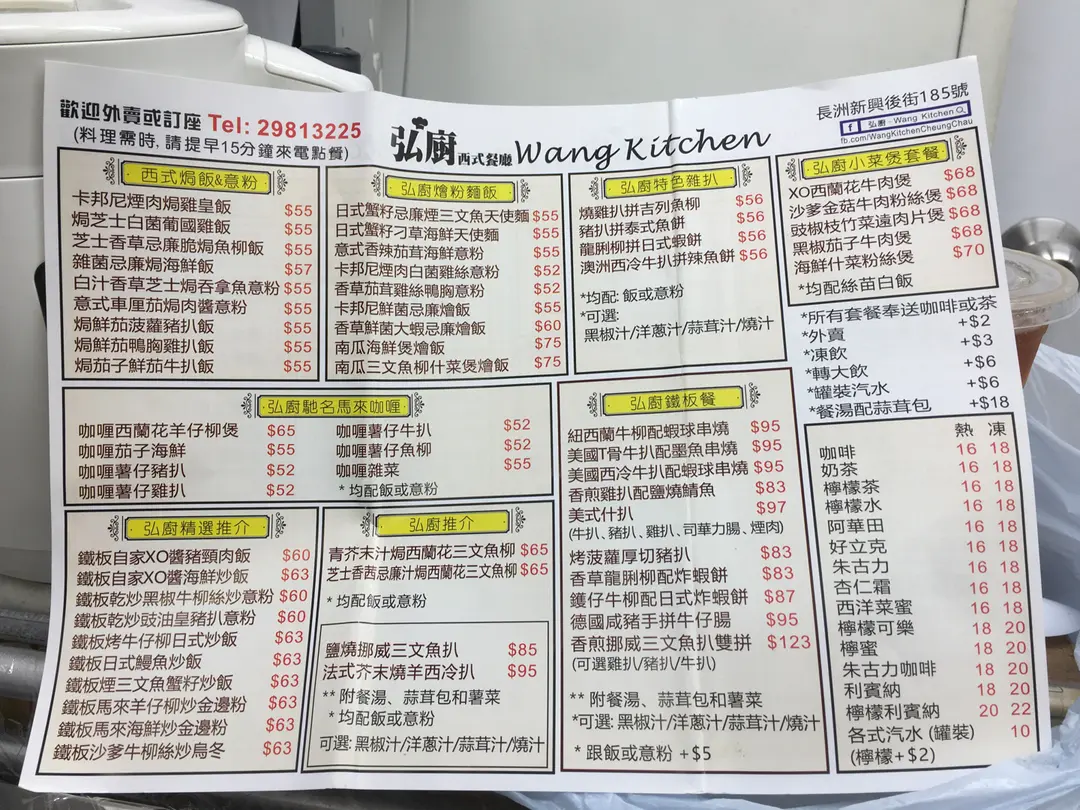 歡迎外賣或訂座 Tel: 29813225
(料理需時, 請提早15分鐘來電點餐)
弘廚 西式餐廳 Wang Kitchen
長洲新興後街185號
f 弘廚 - Wang Kitchen
fb.com/WangKitchenCheungChau
西式焗飯&意粉
卡邦尼煙肉焗雞皇飯 $55
焗芝士白菌葡國雞飯 $55
芝士香草忌廉脆焗魚柳飯 $55
雜菌忌廉焗海鮮飯 $57
白汁香草芝士焗吞拿魚意粉 $55
意式車厘茄焗肉醬意粉 $55
焗鮮茄菠蘿豬扒飯 $55
焗鮮茄鴨胸雞扒飯 $55
焗茄子鮮茄牛扒飯 $55
弘廚燴粉麵飯
日式蟹籽忌廉煙三文魚天使麵 $55
日式蟹籽刁草海鮮天使麵 $55
意式香辣茄茸海鮮意粉 $55
卡邦尼煙肉白菌雞絲意粉 $52
香草茄茸雞絲鴨胸意粉 $52
卡邦尼鮮菌忌廉燴飯 $52
香草鮮菌大蝦忌廉燴飯 $60
南瓜海鮮煲燴飯 $75
南瓜三文魚柳什菜煲燴飯 $75
弘廚特色雜扒
燒雞扒拼吉列魚柳 $56
豬扒拼泰式魚餅 $56
龍脷柳拼日式蝦餅 $56
澳洲西冷牛扒拼辣魚餅 $56
*均配: 飯或意粉
*可選:
黑椒汁/洋蔥汁/蒜茸汁/燒汁
弘廚小菜煲套餐
XO西蘭花牛肉煲 $68
沙爹金菇牛肉粉絲煲 $68
豉椒枝竹菜遠肉片煲 $68
黑椒茄子牛肉煲 $68
海鮮什菜粉絲煲 $70
*均配絲苗白飯
*所有套餐奉送咖啡或茶
*外賣 +$2
*凍飲 +$3
*轉大飲 +$6
*罐裝汽水 +$6
*餐湯配蒜茸包 +$18
弘廚馳名馬來咖喱
咖喱西蘭花羊仔柳煲 $65
咖喱茄子海鮮 $55
咖喱薯仔豬扒 $52
咖喱薯仔雞扒 $52
咖喱薯仔牛扒 $52
咖喱薯仔魚柳 $52
咖喱雜菜 $55
* 均配飯或意粉
弘廚鐵板餐
紐西蘭牛柳配蝦球串燒 $95
美國T骨牛扒配墨魚串燒 $95
美國西冷牛扒配蝦球串燒 $95
香煎雞扒配鹽燒鯖魚 $83
美式什扒 $97
(牛扒、豬扒、雞扒、司華力腸、煙肉)
烤菠蘿厚切豬扒 $83
香草龍脷柳配炸蝦餅 $83
鑊仔牛柳配日式炸蝦餅 $87
德國咸豬手拼牛仔腸 $95
香煎挪威三文魚扒雙拼 $123
(可選雞扒/豬扒/牛扒)
** 附餐湯、蒜茸包和薯菜
*可選: 黑椒汁/洋蔥汁/蒜茸汁/燒汁
* 跟飯或意粉 +$5
弘廚精選推介
鐵板自家XO醬豬頸肉飯 $60
鐵板自家XO醬海鮮炒飯 $63
鐵板乾炒黑椒牛柳絲炒意粉 $60
鐵板乾炒豉油皇豬扒意粉 $60
鐵板烤牛仔柳日式炒飯 $63
鐵板日式鰻魚炒飯 $63
鐵板煙三文魚蟹籽炒飯 $63
鐵板馬來羊仔柳炒金邊粉 $63
鐵板馬來海鮮炒金邊粉 $63
鐵板沙爹牛柳絲炒烏冬 $63
弘廚推介
青芥末汁焗西蘭花三文魚柳 $65
芝士香茜忌廉汁焗西蘭花三文魚柳 $65
* 均配飯或意粉
鹽燒挪威三文魚扒 $85
法式芥末燒羊西冷扒 $95
** 附餐湯、蒜茸包和薯菜
* 均配飯或意粉
可選: 黑椒汁/洋蔥汁/蒜茸汁/燒汁
熱 凍
咖啡 16 18
奶茶 16 18
檸檬茶 16 18
檸檬水 16 18
阿華田 16 18
好立克 16 18
朱古力 16 18
杏仁霜 16 18
西洋菜蜜 16 18
檸檬可樂 18 20
檸蜜 18 20
朱古力咖啡 18 20
利賓納 18 20
檸檬利賓納 20 22
各式汽水 (罐裝) 10
(檸檬+$2)